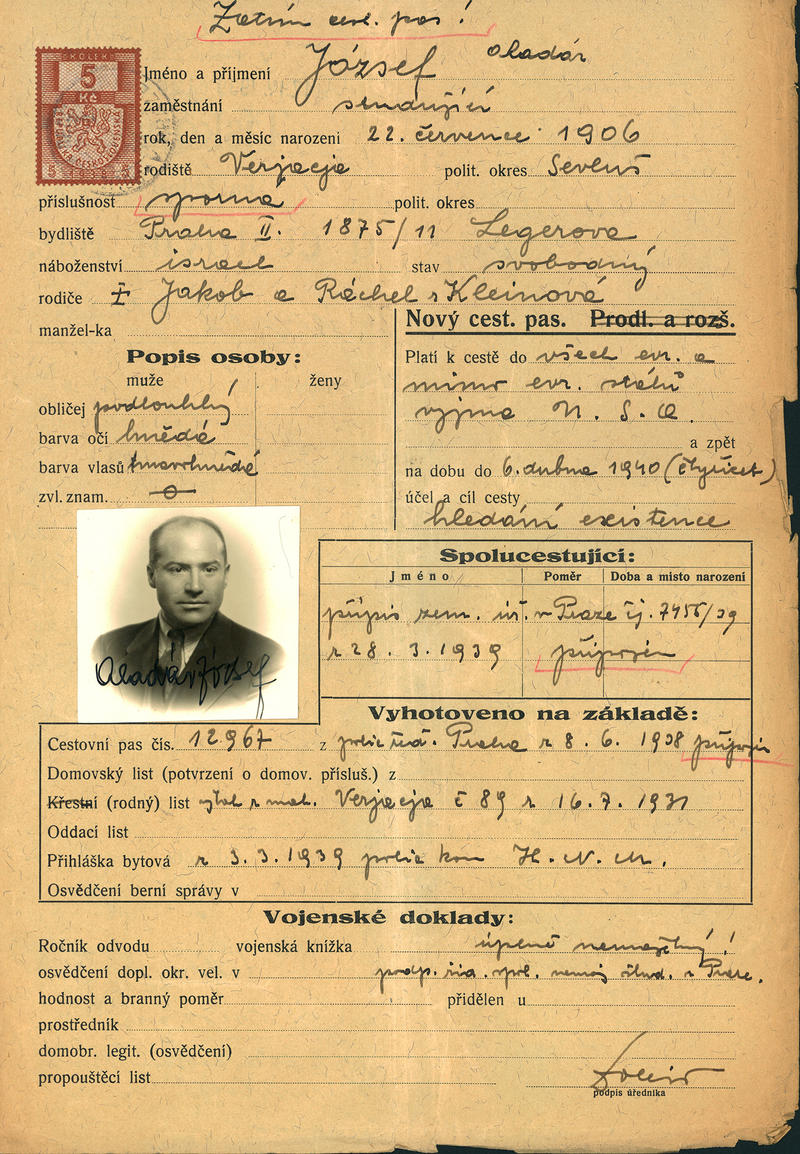 Zatím cest. pas!
KOLEK
5
Kč
5 5
Jméno a příjmení József Aladár
zaměstnání
rok, den a měsíc narození 22. července 1906
rodiště Verjacja polit. okres Sevluš
příslušnost sporná polit. okres
bydliště Praha II. 1875/11 Legerova
náboženství israel stav svobodný
rodiče Jakob a Ráchel r Kleinová
manžel-ka
Popis osoby:
muže ženy
obličej podlouhlý
barva očí hnědé
barva vlasů tmavohnědé
zvl. znam. o
Nový cest. pas. Prodl. a rozš.
Platí k cestě do všech evr. a
mimo evr. států
vyjma U. S. A.
a zpět
na dobu do 6. dubna 1940 (čtyřicet)
účel a cíl cesty
hledání existence
Aladár József
Spolucestující:
Jméno Poměr Doba a místo narození
přípis zem. úř. v Praze čj. 7456/39
z 28. 3. 1939 připojen
Vyhotoveno na základě:
Cestovní pas čís. 12967 z polic. řed. Praha z 8. 6. 1938 připojen
Domovský list (potvrzení o domov. přísluš.) z
Křestní (rodný) list z mat. Verjacja č 89 z 16. 7. 1931
Oddací list
Přihláška bytová z 3. 3. 1939 polic kom H. N. M.
Osvědčení berní správy v
Vojenské doklady:
Ročník odvodu vojenská knížka úplně nemajetný!
osvědčení dopl. okr. vel. v podp. v Praze.
hodnost a branný poměr přidělen u
prostředník
domobr. legit. (osvědčení)
propouštěcí list
podpis úředníka